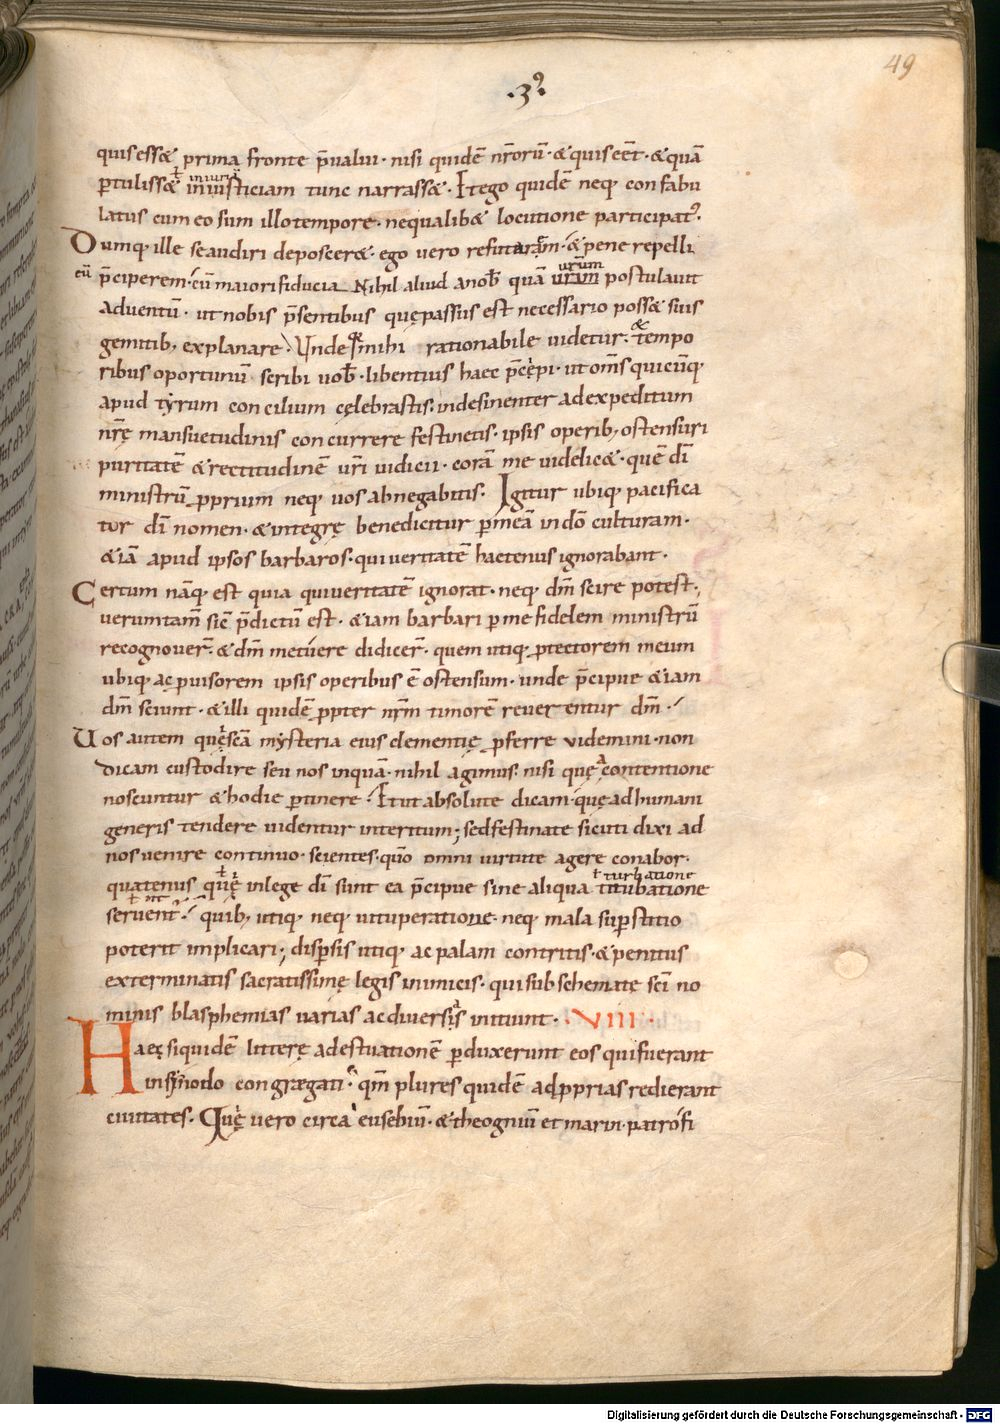 49
.3.
quis essę prima fronte p̄ualui · nisi quidē nr̄orū · & quis eēt · & quā
ꝑtulissę iniusticiam tunc narrassę · Et ego quidē neq; confabu
iniuriā
latus cum eo sum illo tempore · nequalibę locutione participat᷒.
Dumq; ille se audiri deposcerę · ego vero refutarem · & pene repelli
eū p̄ciperem · cū maiori fiducia Nihil aliud a nob̄ quā ur̄am postulauit
urūm
aduentū · ut nobis p̄sentibus quę passus est necessario possę suis
gemitib; explanare · Unde qm̄ mihi rationabile uidetur · & tempo
ribus oportunū scribi uob̄ · libentius haec p̄cępi · ut om̄s quicūq;
apud tyrum concilium cęlebrastis · indesinenter ad expeditum
nr̄ę mansuetudinis concurrere festinetis · ipsis operib; ostensuri
puritatē & rectitudinē ur̄i iudicii · corā me uidelicę · quē dī
ministrū ꝓprium neq; uos abnegabitis · Igitur ubiq; pacifica
tur dī nomen · & integrę benedicitur ꝑ meā in dō culturam ·
& iā apud ipsos barbaros · qui veritatē hactenus ignorabant ·
Certum nāq; est quia qui veritatē ignorat · neq; dm̄ scire potest ·
uerumtam̄ sic̄ p̄dictū est · & iam barbari ꝑ me fidelem ministrū
recognouer̄ · & dm̄ metuere didicer̄ · quem utiq; ꝓtectorem meum
ubiq; ac ꝓuisorem ipsis operibus ē ostensum · unde p̄cipue & iam
dm̄ sciunt · & illi quidē ꝓpter nr̄m timorē reuerentur dm̄ ·
Uos autem quę scā mysteria eius clementię ꝓferre videmini · non
dicam custodire seu nos inquā · nihil agimus · nisi quę contentione
noscuntur & hodie ꝑtinere · Et ut absolute dicam · quę ad humani
generis tendere uidentur interitum; sed festinate sicuti dixi ad
nos uenire continuo · scientes · quō omni uirtute agere conabor ·
quatenus quę in lege dī sunt ea p̄cipue sine aliqua titubatione
ł turbatione
seruent᷒ · quib; utiq; neq; uituperatione · neq; mala suꝑstitio
poterit implicari; disꝑsis utiq; ac palam contritis · & penitus
exterminatis sacratissimę legis inimicis · qui sub schematę scī no
minis blasphemias uarias ac diuersas initiunt · VIII ·
Haec siquidē litterę ad estuationē ꝑduxerunt eos qui fuerant
in synodo congregati · qm̄ plures quidē ad ꝓprias redierant
ciuitates · Que vero circa eusebiū · & theogniū et marin · patrofi
Digitalisierung gefördert durch die Deutsche Forschungsgemeinschaft - DFG